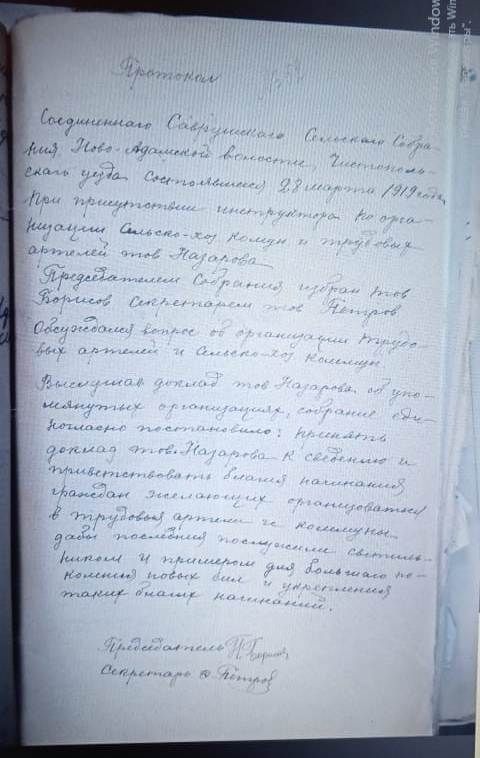 Протокол
Соединеннаго Саврушскаго Сельскаго Собра-
ния Ново-Адамской волости, Чистополь-
скаго уезда состоявшиеся 28 марта 1919 года,
При присутствии инструктора по орга-
низации Сельско-хоз комун и трудовых
артелей тов Назарова
Председателем Собрания избран тов
Борисов Секретарем тов Петров
Обсуждался вопрос об организации трудо-
вых артелей и Сельско-хоз коммун
Выслушав доклад тов Назарова об упо-
мянутых организациях, собрание еди-
ногласно постановило: принять
доклад тов. Назарова к сведению и
приветствовать благия начинания
граждан желающих организоваться
в трудовыя артели и коммуны
дабы последния послужили светиль-
ником и примером для большаго по-
коления новых сил и укрепления
таких благих начинаний.
Председатель И Борисов
Секретарь Петров
Window
ть Win
ры".